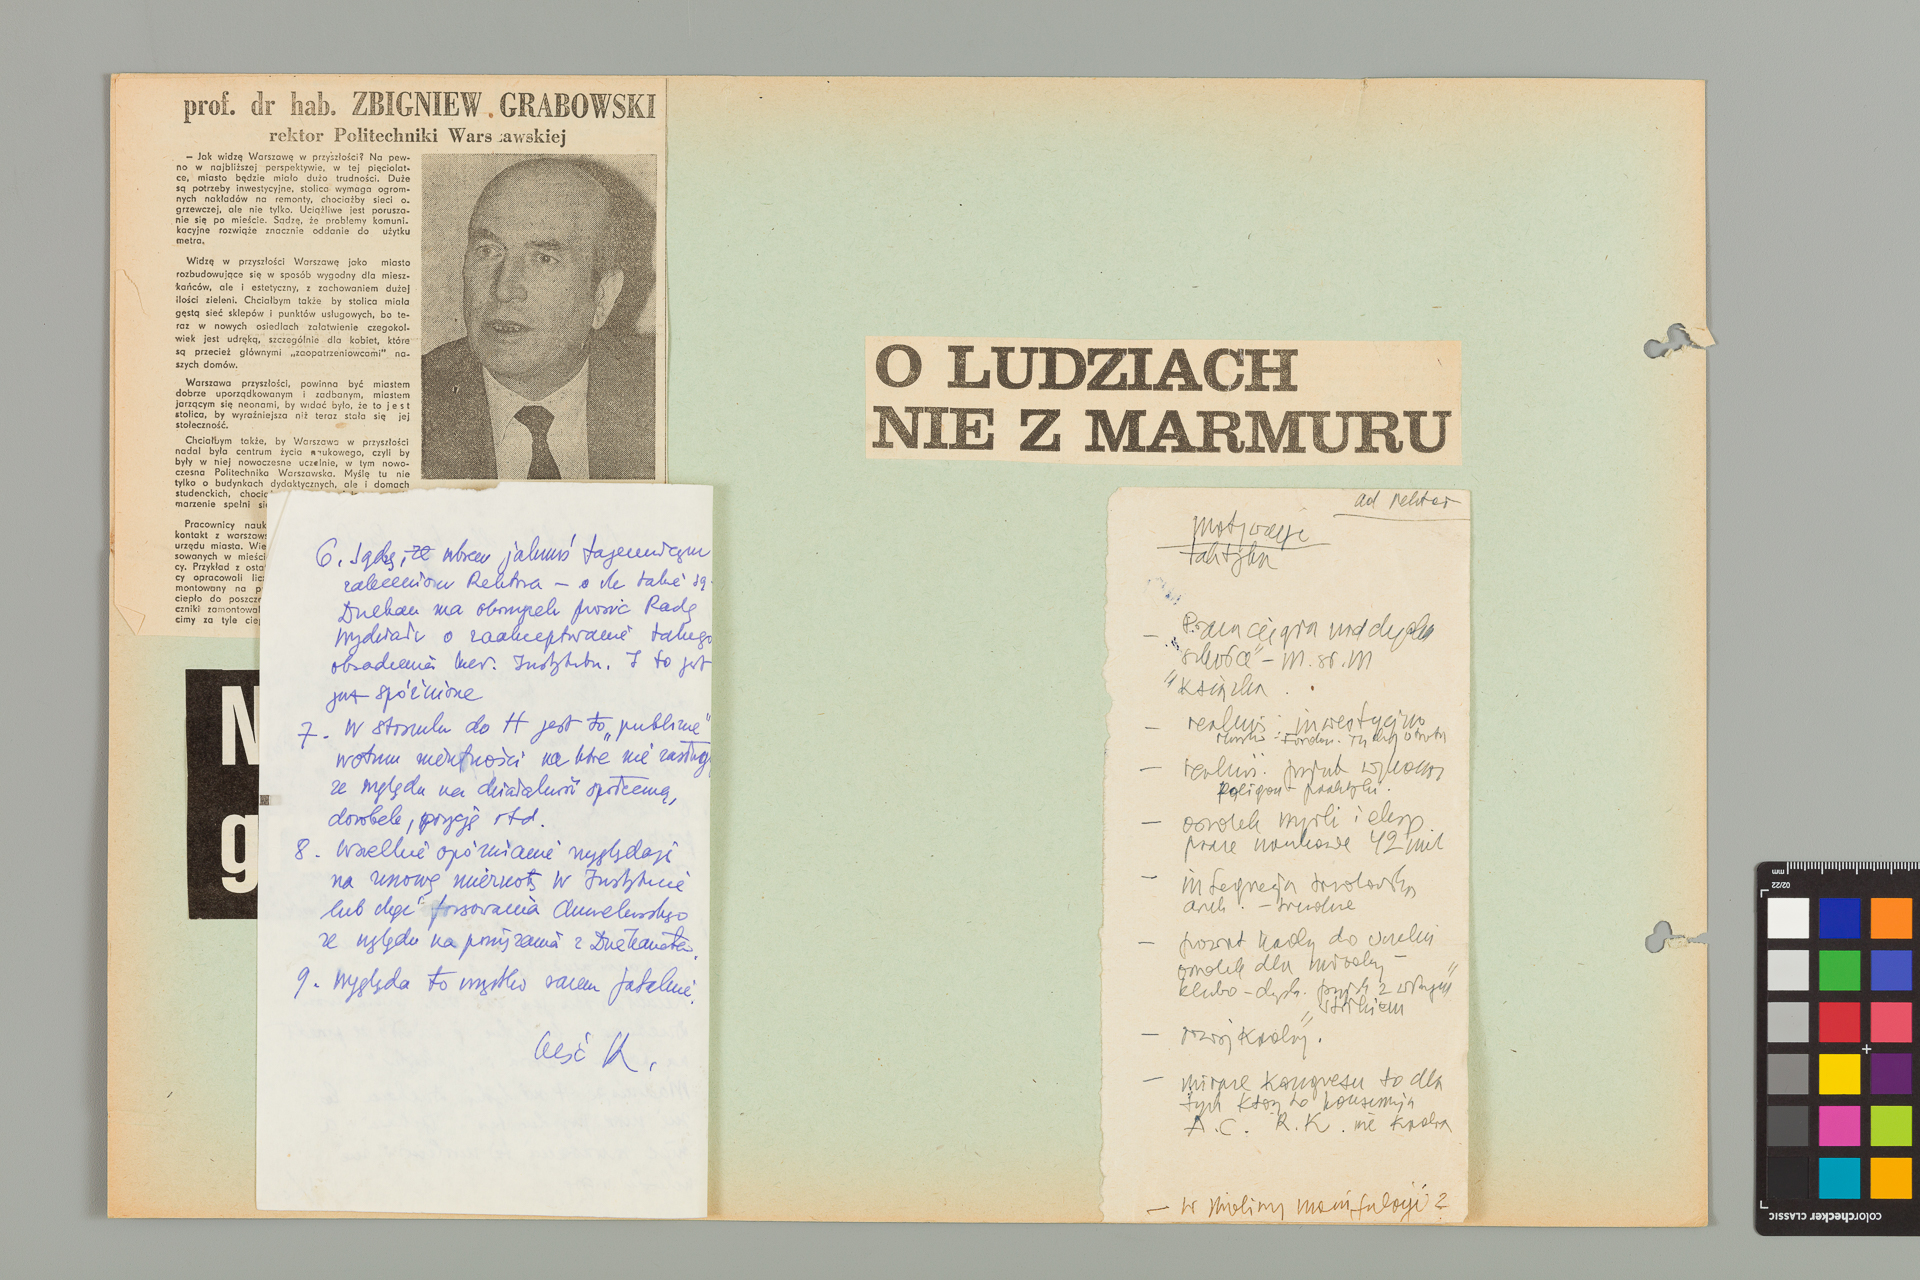 prof. dr hab. ZBIGNIEW GRABOWSKI
rektor Politechniki Wars zawskiej
— Jak widzę Warszawę w przyszłości? Na pew-
no w najbliższej perspektywie, w tej pięciolat-
ce, miasto będzie miało dużo trudności. Duże
są potrzeby inwestycyjne, stolica wymaga ogrom-
nych nakładów na remonty, chociażby sieci o-
grzewczej, ale nie tylko. Uciążliwe jest porusza-
nie się po mieście. Sądzę, że problemy komuni-
kacyjne rozwiąże znacznie oddanie do użytku
metra.
Widzę w przyszłości Warszawę jako miasto
rozbudowujące się w sposób wygodny dla miesz-
kańców, ale i estetyczny, z zachowaniem dużej
ilości zieleni. Chciałbym także by stolica miała
gęstą sieć sklepów i punktów usługowych, bo te-
raz w nowych osiedlach załatwienie czegokol-
wiek jest udręką, szczególnie dla kobiet, które
są przecież głównymi „zaopatrzeniowcami” na-
szych domów.
Warszawa przyszłości, powinna być miastem
dobrze uporządkowanym i zadbanym, miastem
jarzącym się neonami, by widać było, że to jest
stolica, by wyraźniejsza niż teraz stała się jej
stołeczność.
Chciałbym także, by Warszawa w przyszłości
nadal była centrum życia naukowego, czyli by
były w niej nowoczesne uczelnie, w tym nowo-
czesna Politechnika Warszawska. Myślę tu nie
tylko o budynkach dydaktycznych, ale i domach
studenckich, choci
marzenie spełni się
Pracownicy nauk
kontakt z warszaws
urzędu miasta. Wie
sowanych w mieści
cy. Przykład z osta
cy opracowali licz
montowany na p
ciepło do poszcze
czniki zamontowal
cimy za tyle ciep
N
g
O LUDZIACH
NIE Z MARMURU
6. Sądzę, że wbrew jakimś tajemniczym
zaleceniom Rektora – o ile takie są
Dziekan ma obowiązek prosić Radę
Wydziału o zaakceptowanie takiego
obsadzenia kier. Instytutu. I to jest
już spóźnione
7. W stosunku do H jest to „publiczne”
wotum nieufności na które nie zasługuje
ze względu na działalność społeczną,
dorobek, pozycję itd.
8. Wszelkie opóźnianie wyglądają
na zmowę miernoty w Instytucie
lub chęć forsowania
ze względu na powiązania z Dziekanatem.
9. Wygląda to wszystko razem fatalnie.
Cześć K.
ad rektor
motywacje
taktyka
— Praca ciągła nad dyplom
szkoła” – m. st. m
„Książka.
— realność: inwestycyjna
— realiz.
poligon praktyki.
— ośrodek myśli i eksp
prace naukowe 42 mil
— integracja środowiska
arch. – trudne
— powrót kadry do uczelni
ośrodek dla młodzieży –
klubo-dysk.
— rozwój kadry.
— miejsce Kongresu to dla
tych którzy to
A.C. R.K. nie kadra
— w